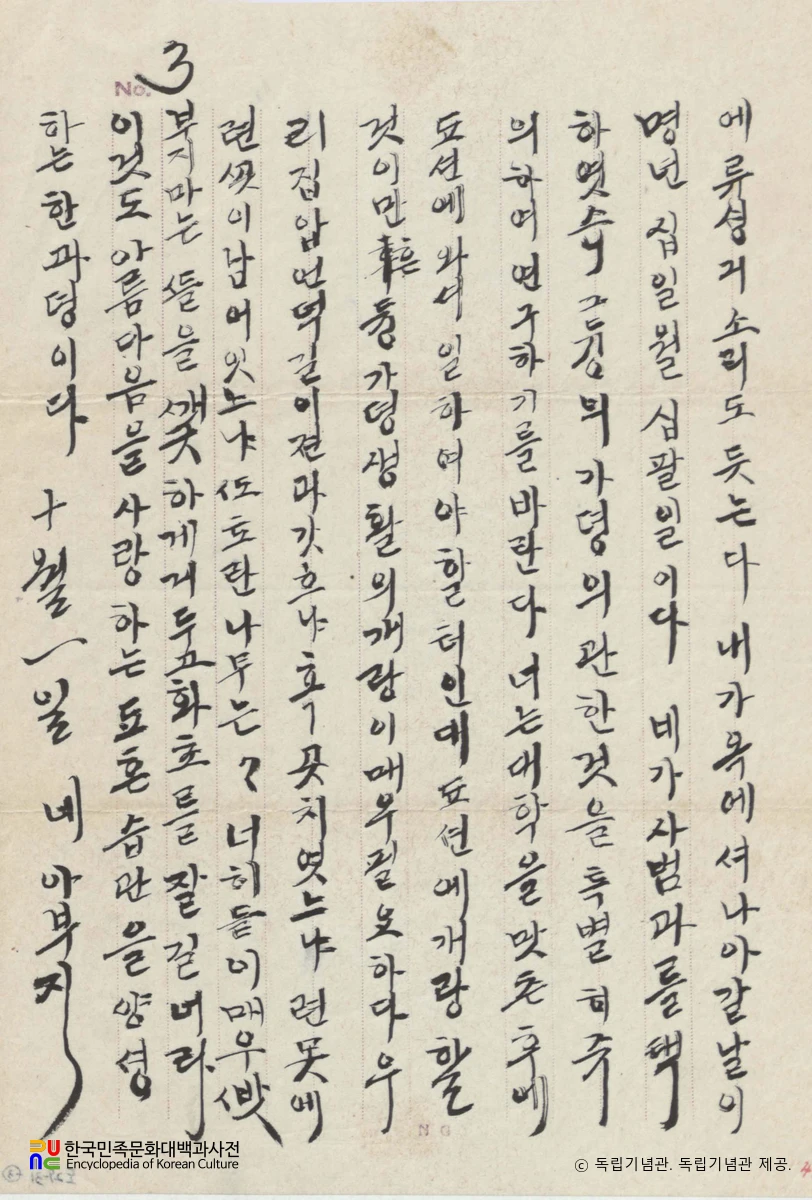 No. 3
에 류성긔 소리도 듯는다 내가 옥에셔 나아갈 날이
명년 십일월 십팔일이다 네가 사범과를 택
하엿슨 가뎡의 관한 것을 특별히 주
의하여 연구하기를 바란다 너는 대학을 맛츤 후에
됴션에 와서 일하여야 할 터인대 됴션에 개량할
것이 만흔 가뎡생활의 개량이 매우 필요하다 우
리 집 압 언덕길이 전과 갓흐냐 혹 곳치엿느냐 련못에
련꼿이 남어 잇느냐 또 포도란 나무는? 너희들이 매우 밧
부지마는 뜰을 깨끗하게 거두고 화초를 잘 길너라
이것도 아름마음을 사랑하는 됴흔 습관을 양셩
하는 한 과뎡이다 十월 一일 네 아부지
한국민족문화대백과사전
Encyclopedia of Korean Culture
ⓒ 독립기념관. 독립기념관 제공.